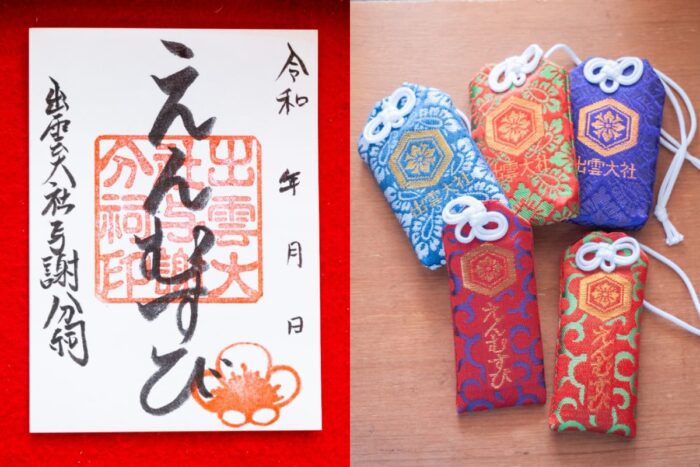 令和 年 月 日
えんむすび
出雲大社与謝分祠
出雲大
社与謝
分祠印
出雲大社
出雲大社
出雲大社
えんむすび
えんむすび